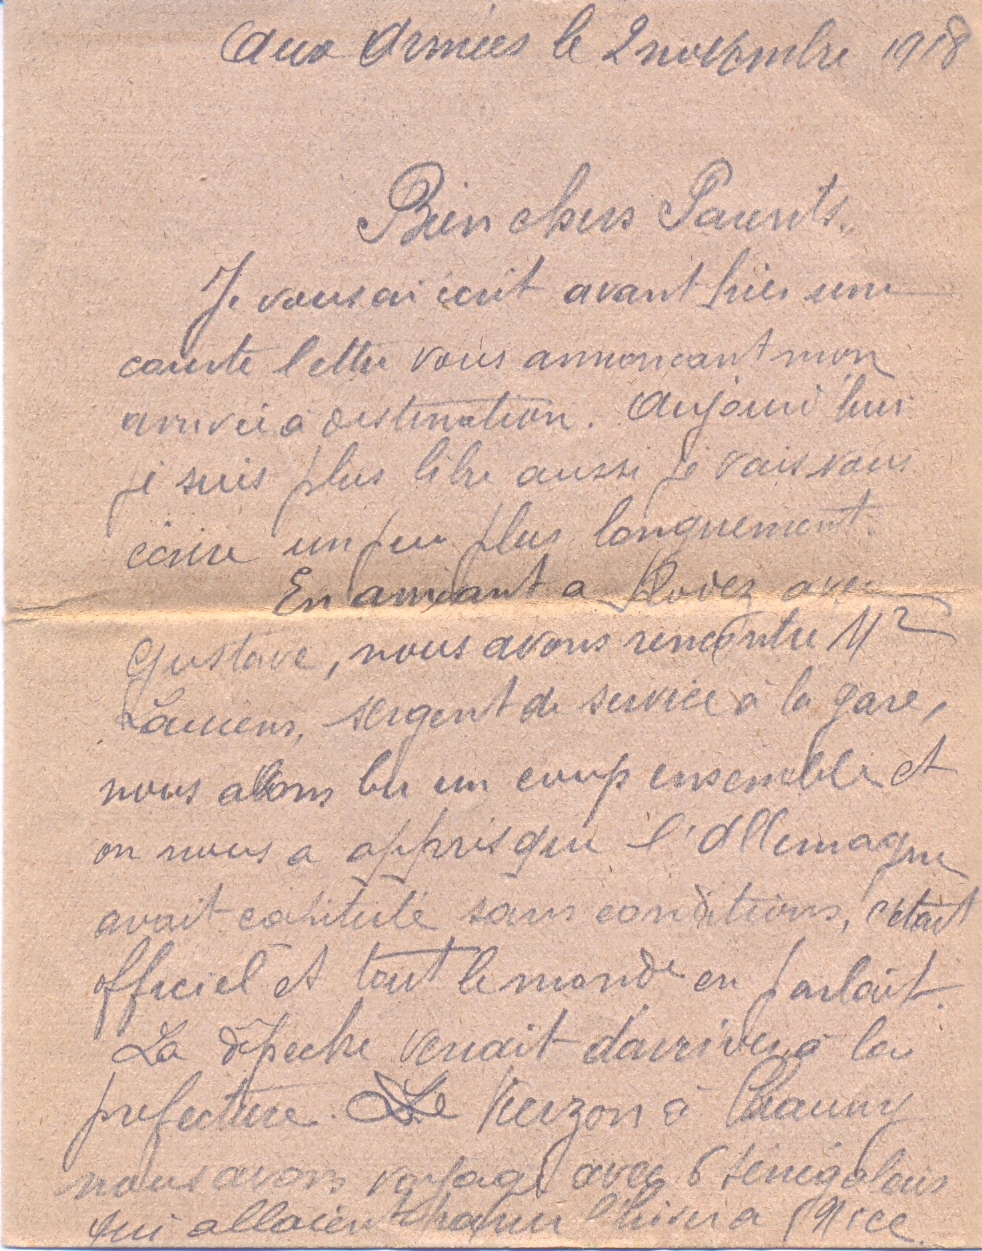 Aux Armées le 2 novembre 1918
Bien chers Parents.
Je vous ai écrit avant hier une
courte lettre vous annoncant mon
arrivée à destination. Aujourd'hui
je suis plus libre aussi je vais vous
écrire un peu plus longuement.
En arrivant a Rodez avec
Gustave, nous avons rencontre Mr
sergent de service à la gare,
nous avons bu un coup ensemble et
on nous a appris que l'Allemagne
avait capitulé sans conditions, c'était
officiel et tout le monde en parlait.
La dépeche venait d'arriver à la
prefecture. De Vierzon à
nous avons voyagé avec 6 sénégalais
qui allaient passer l'hiver a Nice.